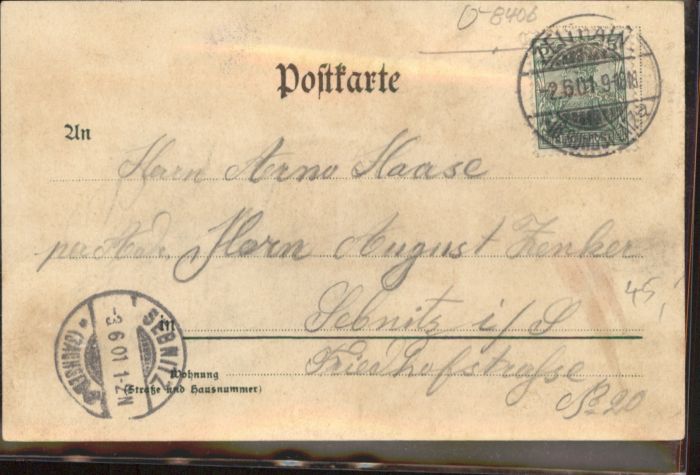 0-8406
2.6.01.9-10N
Postkarte
An
Herrn Arno Haase
per Adr. Herrn August Zenker
Sebnitz i/S
45,-
in
Friedhofstrasse
No 20
Wohnung
(Straße und Hausnummer)
SEBNITZ
-3 6 01 1-2N
(SACHSEN)